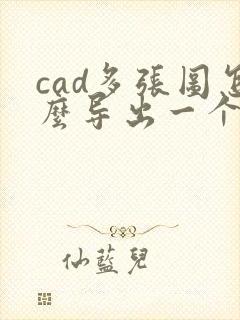 cad多張圖怎
麼导出一个
仙藍兒